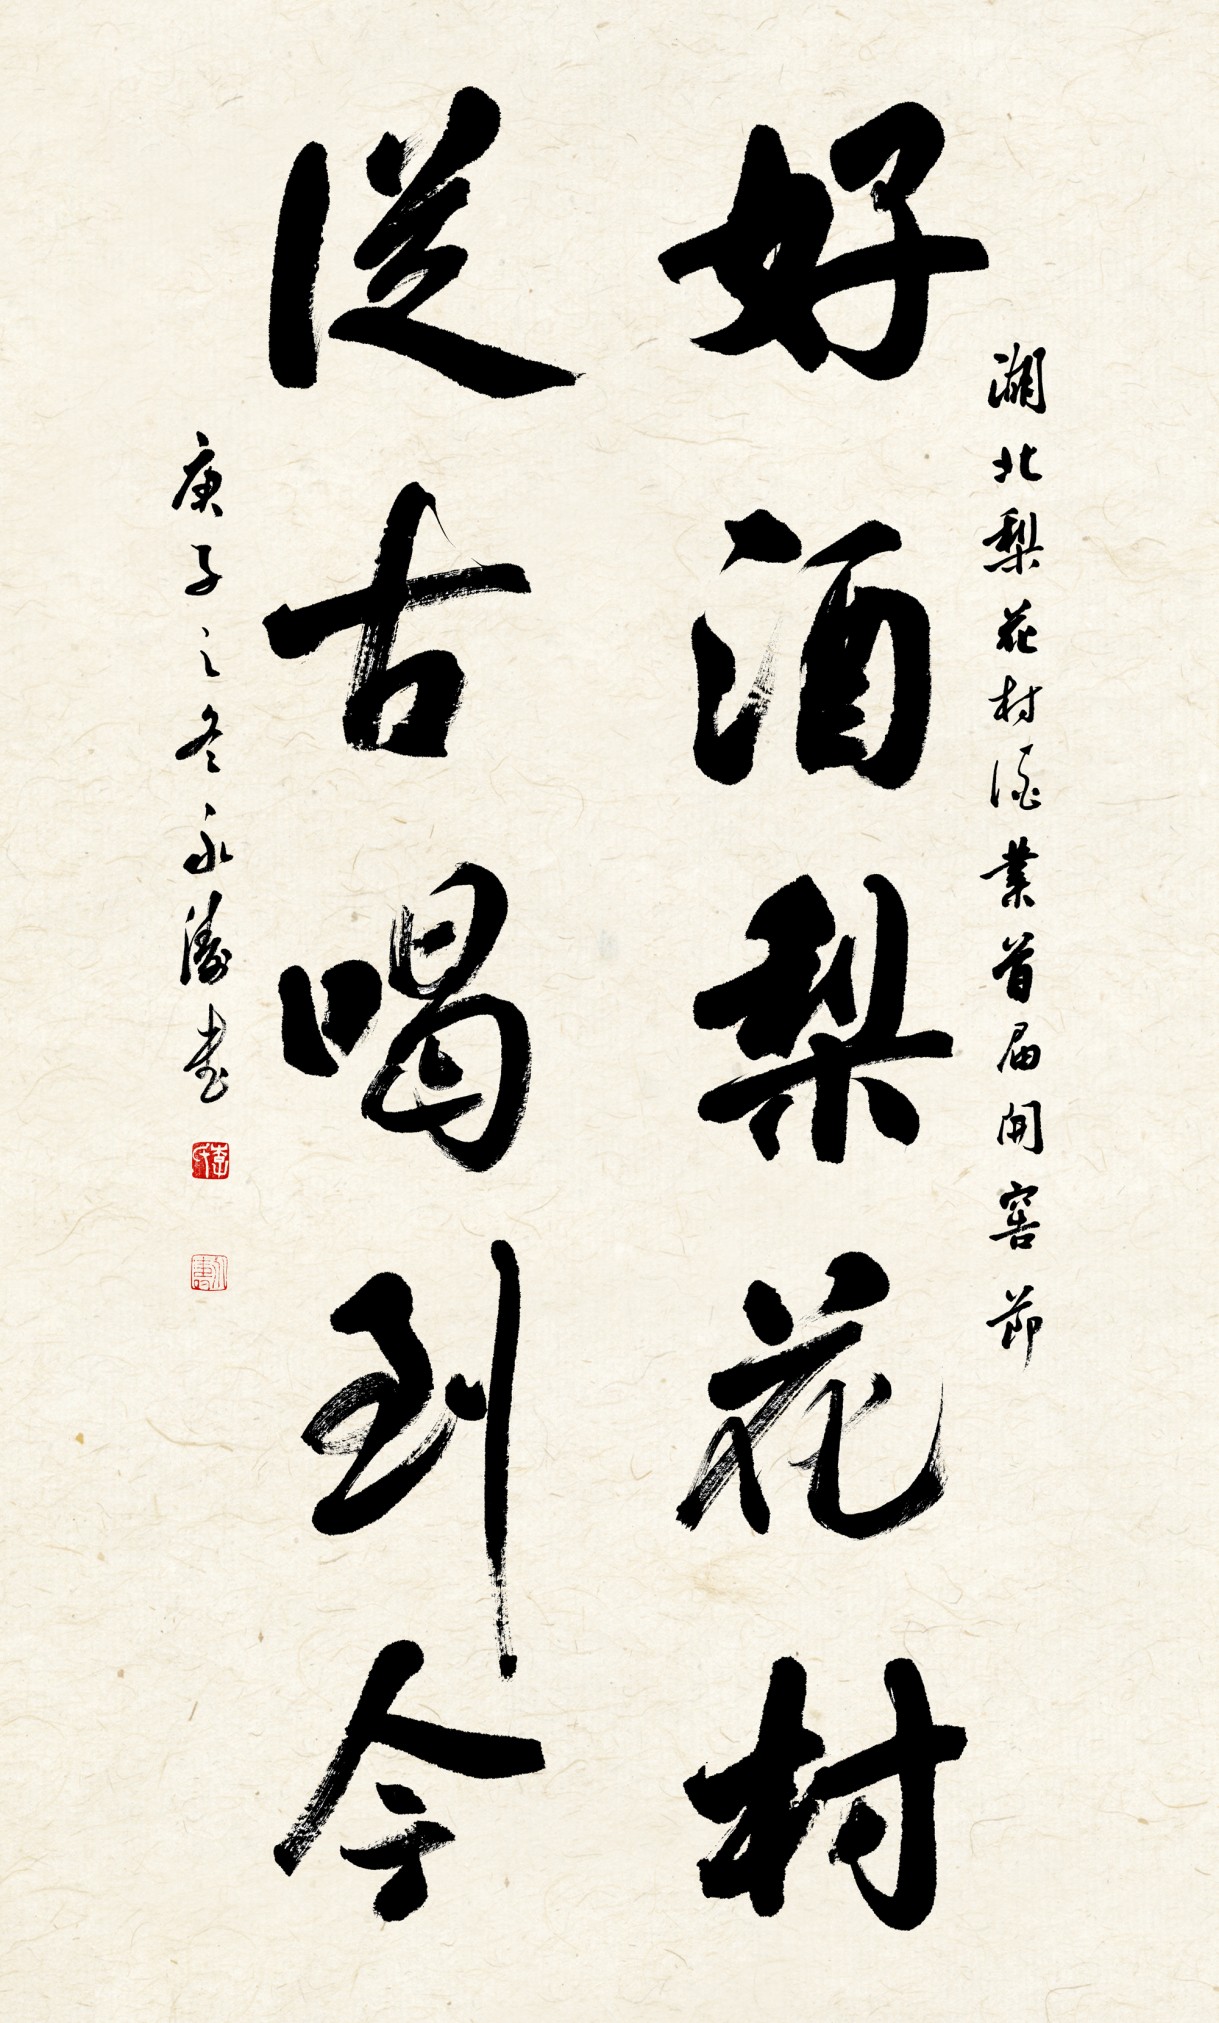 湖北梨花村酒業首届開窖節
好酒梨花村
從古喝到今
庚子之冬永濤書